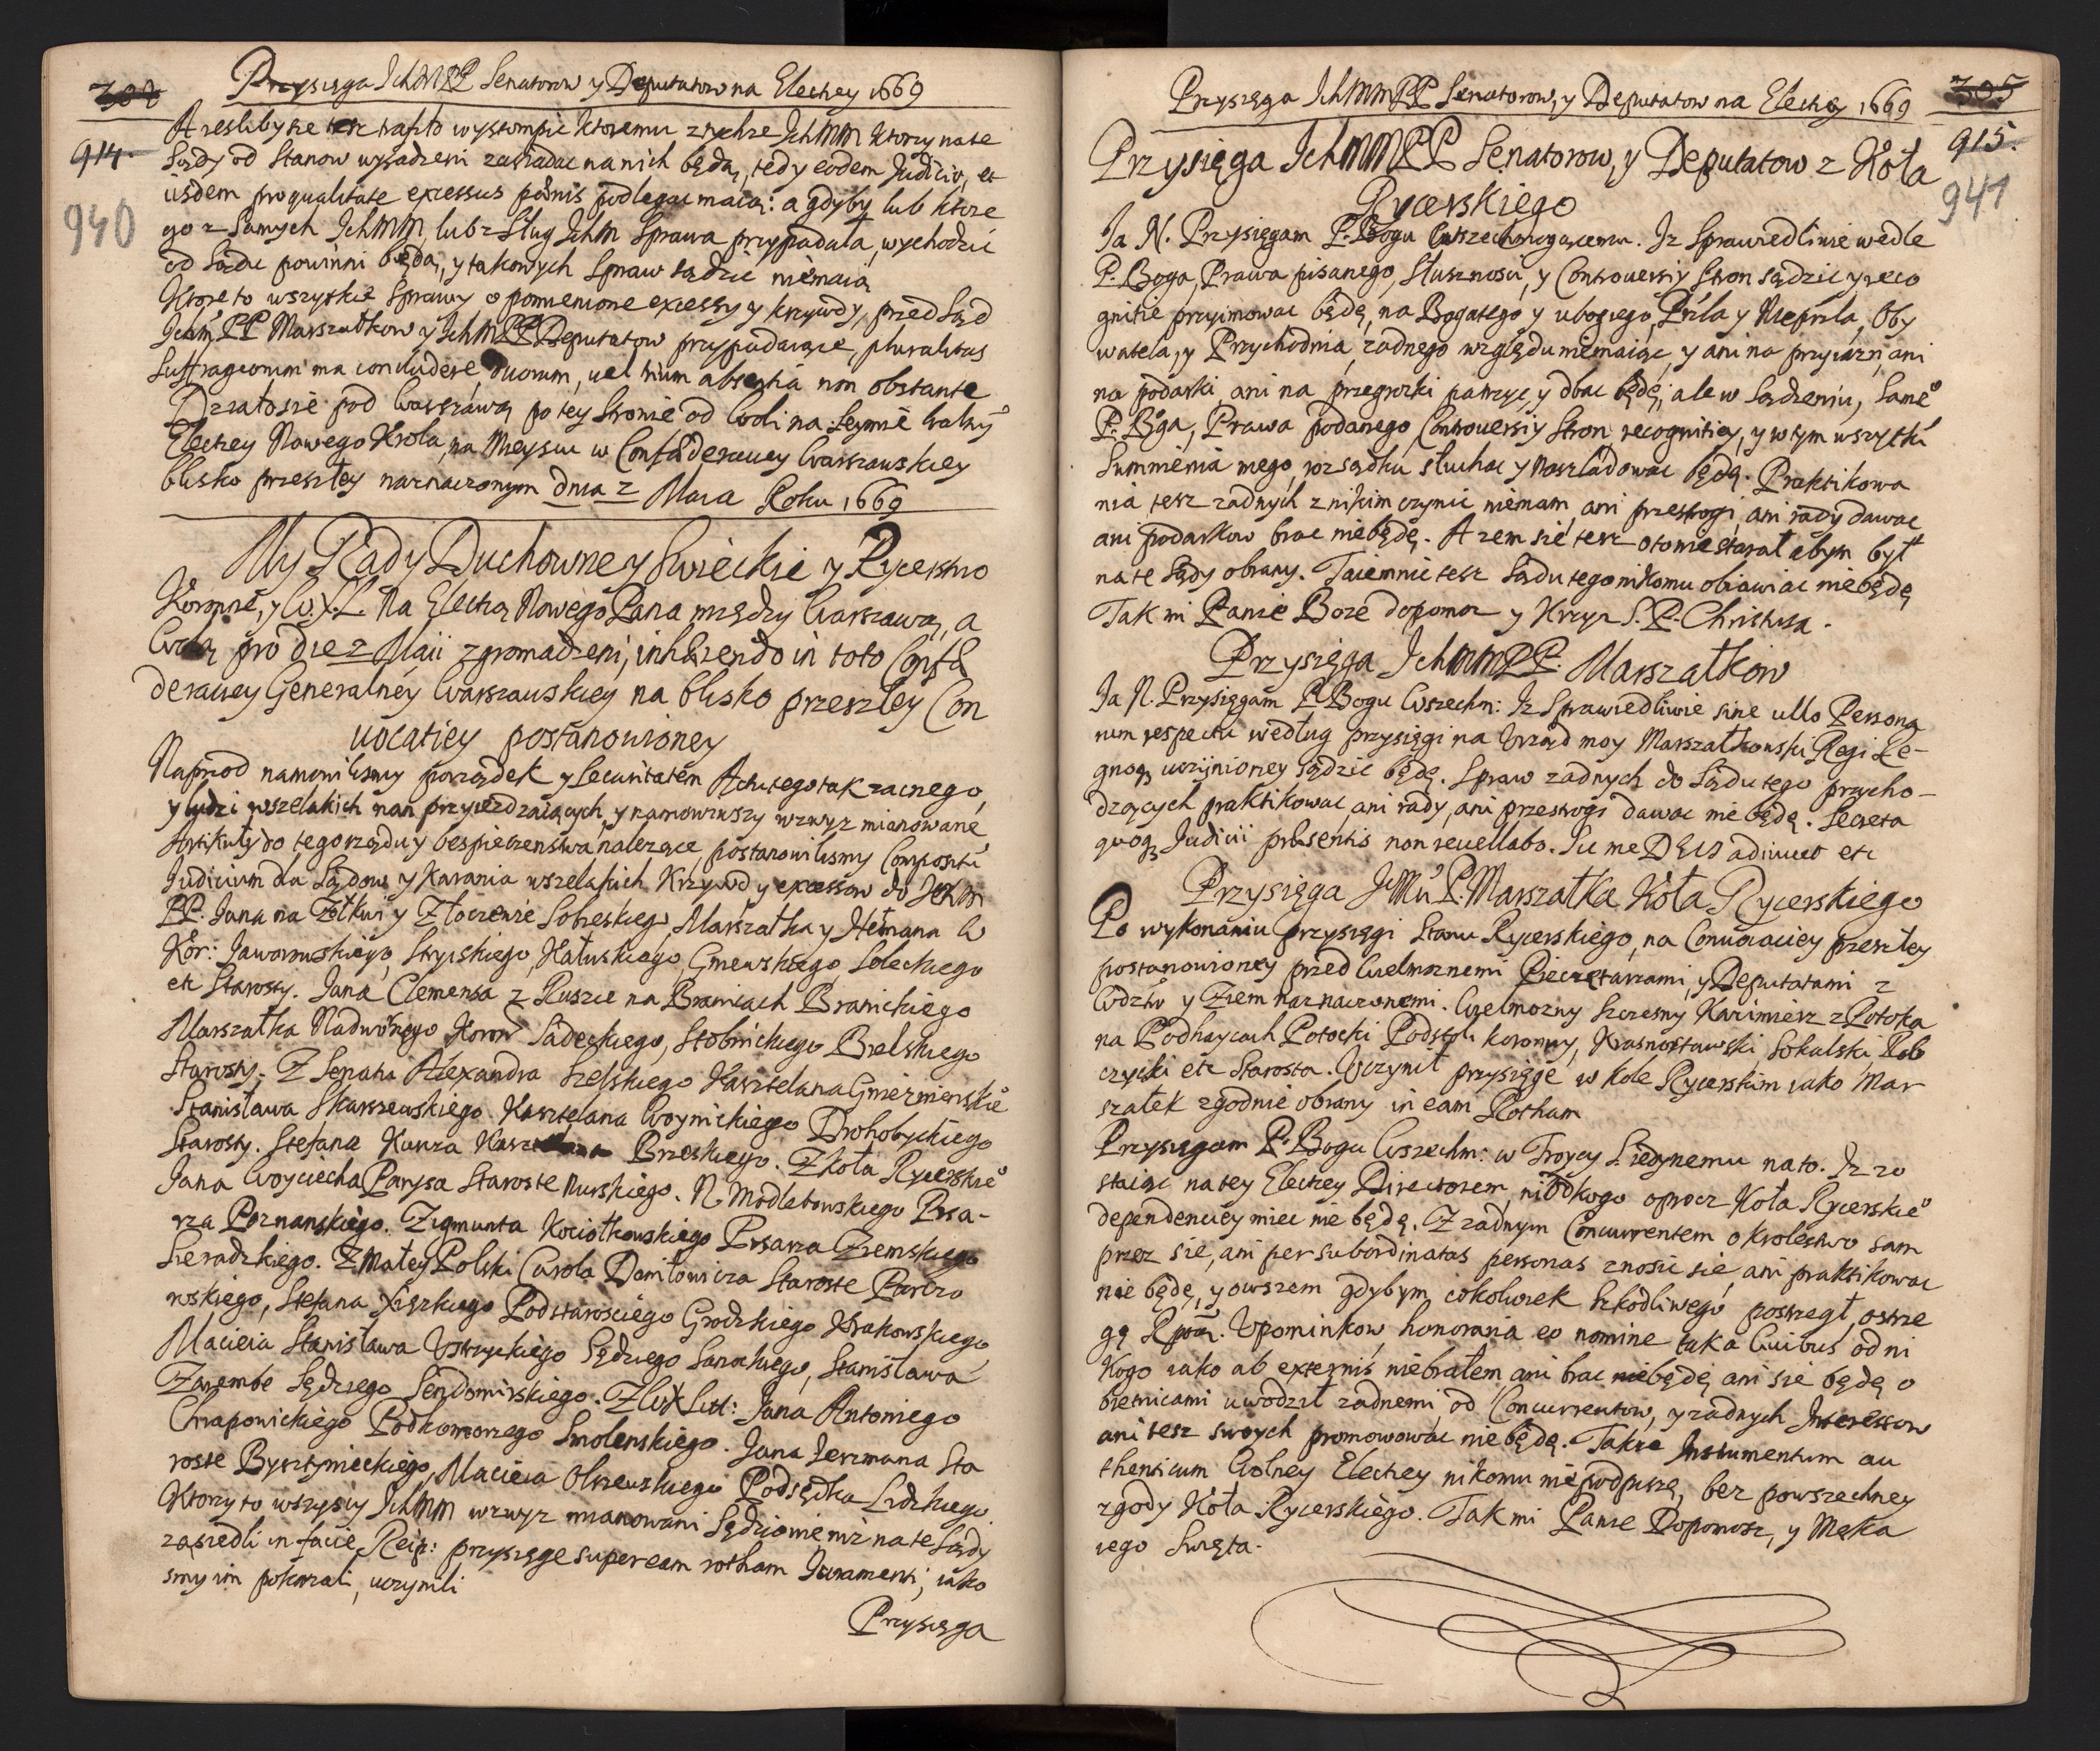 Przysięga IchMPP Senatorow y Deputatow na Elechey 1669
914.
940
A iesliby sie tesz trafiło wystompić ktoremu z tychze IchMM ktorzy na te
Sądy od Stanow wysadzeni zasiadac na nich będą, tedy eodem Judicio, et
iisdem pro qualitate excessus pænis podlegac maią: a gdyby lub ktore
go z Samych IchMM, lub z Sług IchM Sprawa przypadała, wychodzić
od Sądu powinni będą, y takowych Spraw sądzic niemaią
Ktore to wszystkie Sprawy o pomienione excessy y krzywdy, przed Sąd
Ichm PP Marszałkow y IchMPP Deputatow przypadaiące, pluralitas
Suffragiorum ma concludere, duorum, uel trium absentia non obstante
Działosie pod Warszawą po tey Stronie od Woli na Seymie Walny
Elechey Nowego Krola, na Mieyscu w Confæderacyey Warszawskiey
blisko przeszłey naznaczonym dnia 2 Maia Roku 1669
My Rady Duchowne y Swieckie y Rycerstwo
Koronne, y W.X.L. Na Electią Nowego Pana między Warszawą, a
Wolą pro die 2 Maii zgromadzeni, inhærendo in toto Confæ
deracyey Generalney Warszawskiey na blisko przeszłey Con
uocatiey postanowioney
Naprzod namowilismy porządek y Securitatem Actu tego tak zacnego,
y ludzi wszelakich nan przyiezdzaiących, y namowiwszy wzwyz mianowane
Artikuły do tego rządu y bespieczenstwa nalezące, postanowilismy Compositu
Iudicium dla Sądow y Karania wszelakich Krzywd y excessow do IchM
PP. Jana na Zołkwi y Złoczowie Sobieskiego, Marszałka y Hetmana W
Kor: Jaworowskiego, Stryiskiego, Kałuskiego, Gniewskiego, Soleckiego
etc Starosty. Jana Clemensa z Ruszcze na Branicach Branickiego
Marszałka Nadwornego Koron Sądeckiego, Stobnickiego Bielskiego
Starosty. Z Senatu Alexandra Sielskiego Kasztelana Gnieznienskie°
Stanisława Skarszewskiego Kasztelana Woynickiego Drohobyckiego
Starosty. Stefana Brzeskiego. Z Koła Rycerskie°
Jana Woyciecha Parysa Staroste Nurskiego. N. Modlebowskiego Pisa-
rza Poznanskiego. Zigmunta Kociołkowskiego Pisarza Ziemskiego
Sieradzkiego. Z Małey Polski Carola Daniłowicza Staroste Parczo
wskiego, Stefana Podstarosciego Grodzkiego Krakowskiego
Macieia Stanisława Ustrzyckiego Sędziego Sanockiego, Stanisława
Zarembe Sędziego Sendomirskiego. Z WX Litt: Jana Antoniego
Chrapowickiego Podkomorzego Smolenskiego. Jana Jeszmana Sta
roste Macieia Olszewskiego Podsędka Lidzkiego.
Ktorzy to wszyscy IchMM wzwyz mianowani Sędziowie niz na te Sądy
zasiedli in facie Reip: przysięge super eam rotham Iuramenti, iako
smy im pokazali, uczynili
Przysięga
Przysięga IchMMPP Senatorow, y Deputatow na Elechey 1669
305
915.
941
Przysięga IchMMPP Senatorow, y Deputatow z Koła
Rycerskiego
Ja N. Przysięgam P. Bogu Wszechmogącemu. Iz Sprawiedliwie wedle
P. Boga, Prawa pisanego, Słusznosci, y Controuersiy Stron sądzic y reco
gnitie przyimowac będę, na Bogatego y ubogiego, Przila y Nieprzila, Oby
watela, y Przychodnia, zadnego względu niemaiąc, y ani na przyiazn, ani
na podarki, ani na przegrozki patrzyc, y dbac będę; ale w Sądzeniu, Same°
P. Bga, Prawa podanego Controuersiy Stron, recognitiey, y w tym wszytki
Summienia mego, rozsądku słuchac y naszladowac będę. Praktikowa
nia tesz zadnych z nikim czynic niemam ani przestrogi, ani rady dawac
ani podarkow brac niebędę. A zem sie tesz oto nie starał abym był
na te Sądy obrany. Taiemnic tesz Sądu tego nikomu obiawiac niebędę
Tak mi Panie Boze dopomoz y Krzyz S. P. Christusa.
Przysięga IchMMPP. Marszałkow
Ja N. Przysięgam P. Bogu Wszechm: Iz Sprawiedliwie sine ullo Persona
rum respectu według przysięgi na Urząd moy Marszałkowski Regi Re-
gnoq3 uczynioney sądzic będę. Spraw zadnych do Sądu tego przycho-
dzących praktikowac, ani rady, ani przestrogi dawac nie będę. Secreta
quoq3 Iudicii præsentis non reuellabo. Sic me DEUS adiuuet etc
Przysięga JMci P. Marszałka Koła Rycerskiego
Po wykonaniu przysięgi Stanu Rycerskiego, na Conuocaciey przeszłey
postanowioney przed Wielmoznemi Pieczętarzami, y Deputatami z
Wodztw y Ziem naznaczonemi. Wielmozny Szczęsny Kazimierz z Potoka
na Podhaycach Potocki Podstoli koronny, Krasnostawski Sokalski Rob
czycki etc Starosta. Uczynił przysięge w kole Rycerskim iako Mar
szałek zgodnie obrany in eam Rotham
Przysięgam P. Bogu Wszechm: w Troycy S. iedynemu na to. Iz zo
staiąc na tey Elechey Directorem, ni od kogo oprocz Koła Rycerskie°
dependenciey miec nie będę. Z zadnym Concurrentem o krolestwo sam
przez sie, ani per subordinatas personas znosic sie, ani praktikowac
nie będę, y owszem gdybym cokolwiek szkodliwego postrzegł, ostrze
gę Rptą. Upominkow honoraria eo nomine tak a Ciuibus od ni
kogo iako ab externis niebrałem ani brac niebędę, ani sie będę o
bietnicami uwodził zadnemi od Concurrentow, y zadnych Interessow
ani tesz swoych promowowac niebędę. Takze Instrumentum au
thenticum Wolney Elechey nikomu niepodpiszę, bez powszechney
zgody Koła Rycerskiego. Tak mi Panie Dopomosz, y Męka
iego Swięta.